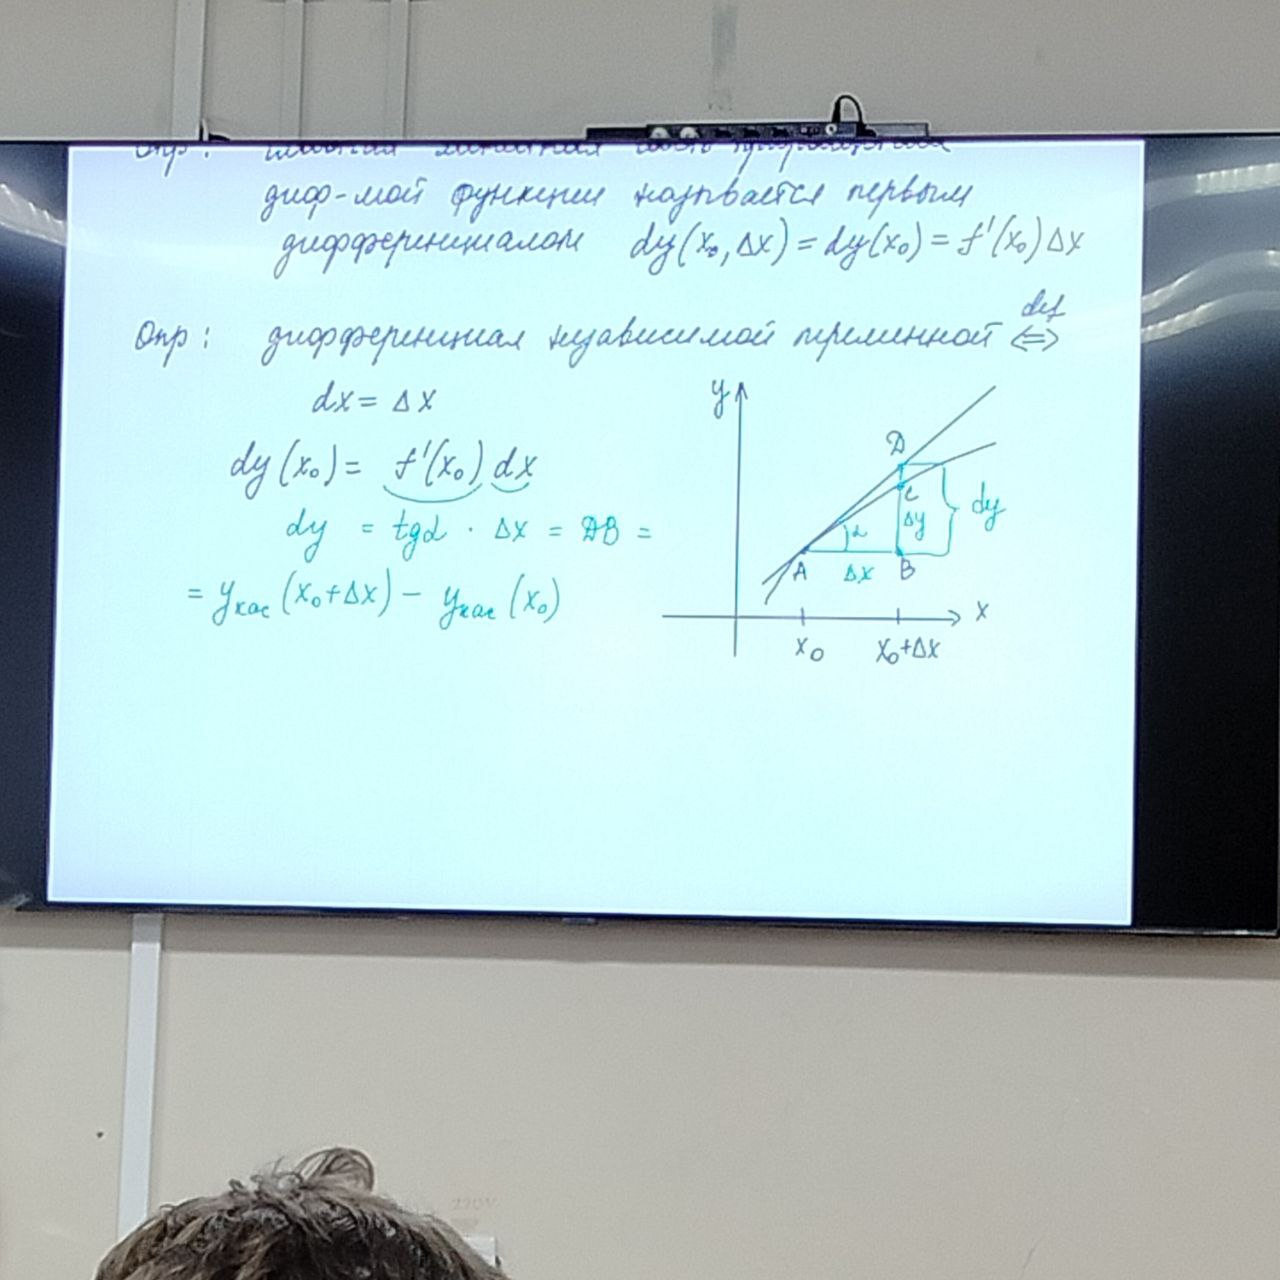 Опр: главная линейная часть приращения
диф-мой функции называется первым
дифференциалом dy(x₀, Δx) = dy(x₀) = f'(x₀) Δx
Опр: дифференциал независимой переменной ⇔ def
dx = Δx
dy(x₀) = f'(x₀) dx
dy = tgα · Δx = DB =
= yкас (x₀+Δx) − yкас (x₀)
y
D
C
Δy
dy
α
A
Δx
B
x
x₀
x₀+Δx
220V